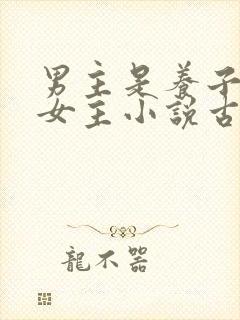 男主是养子
女主小说古
龍不器